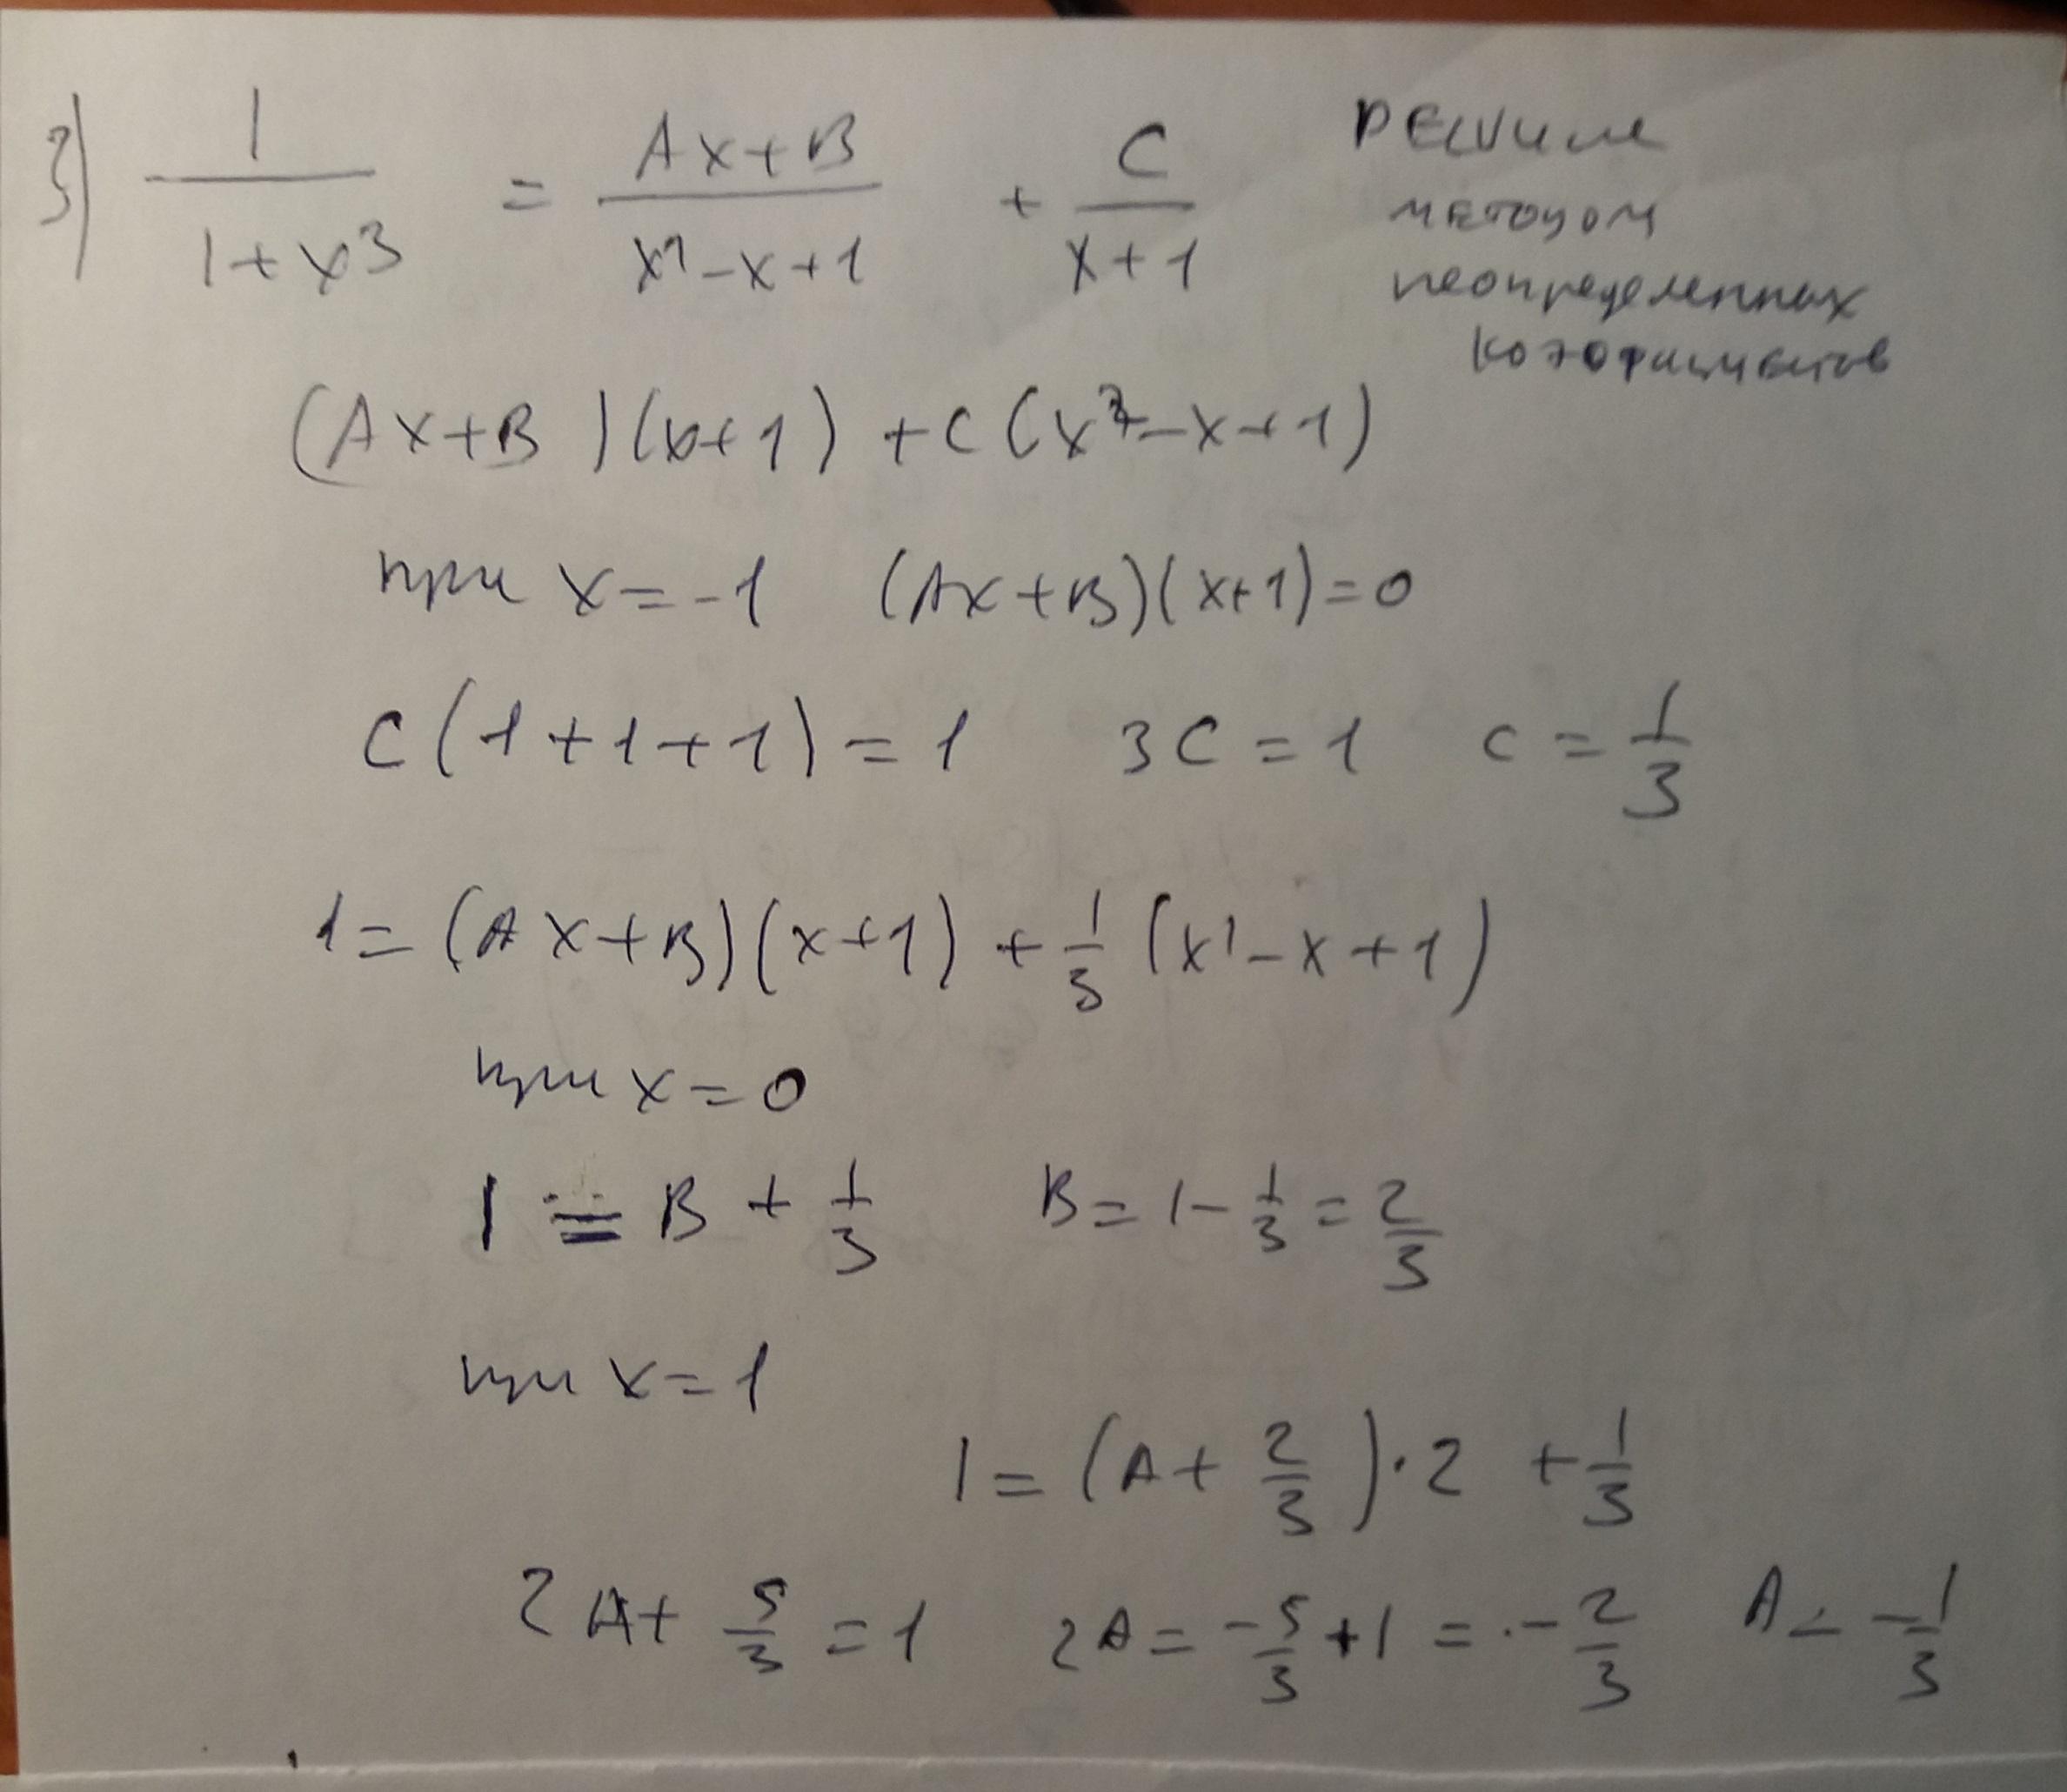 3) 1/(1+x³) = (Ax+B)/(x²-x+1) + C/(x+1) решили
методом
неопределенных
коэффициентов
(Ax+B)(x+1) + C(x²-x+1)
при x=-1 (Ax+B)(x+1)=0
C(1+1+1)=1 3C=1 C=1/3
1=(Ax+B)(x+1)+1/3(x²-x+1)
при x=0
1=B+1/3 B=1-1/3=2/3
при x=1
1=(A+2/3)·2+1/3
2A+5/3=1 2A=-5/3+1=-2/3 A=-1/3